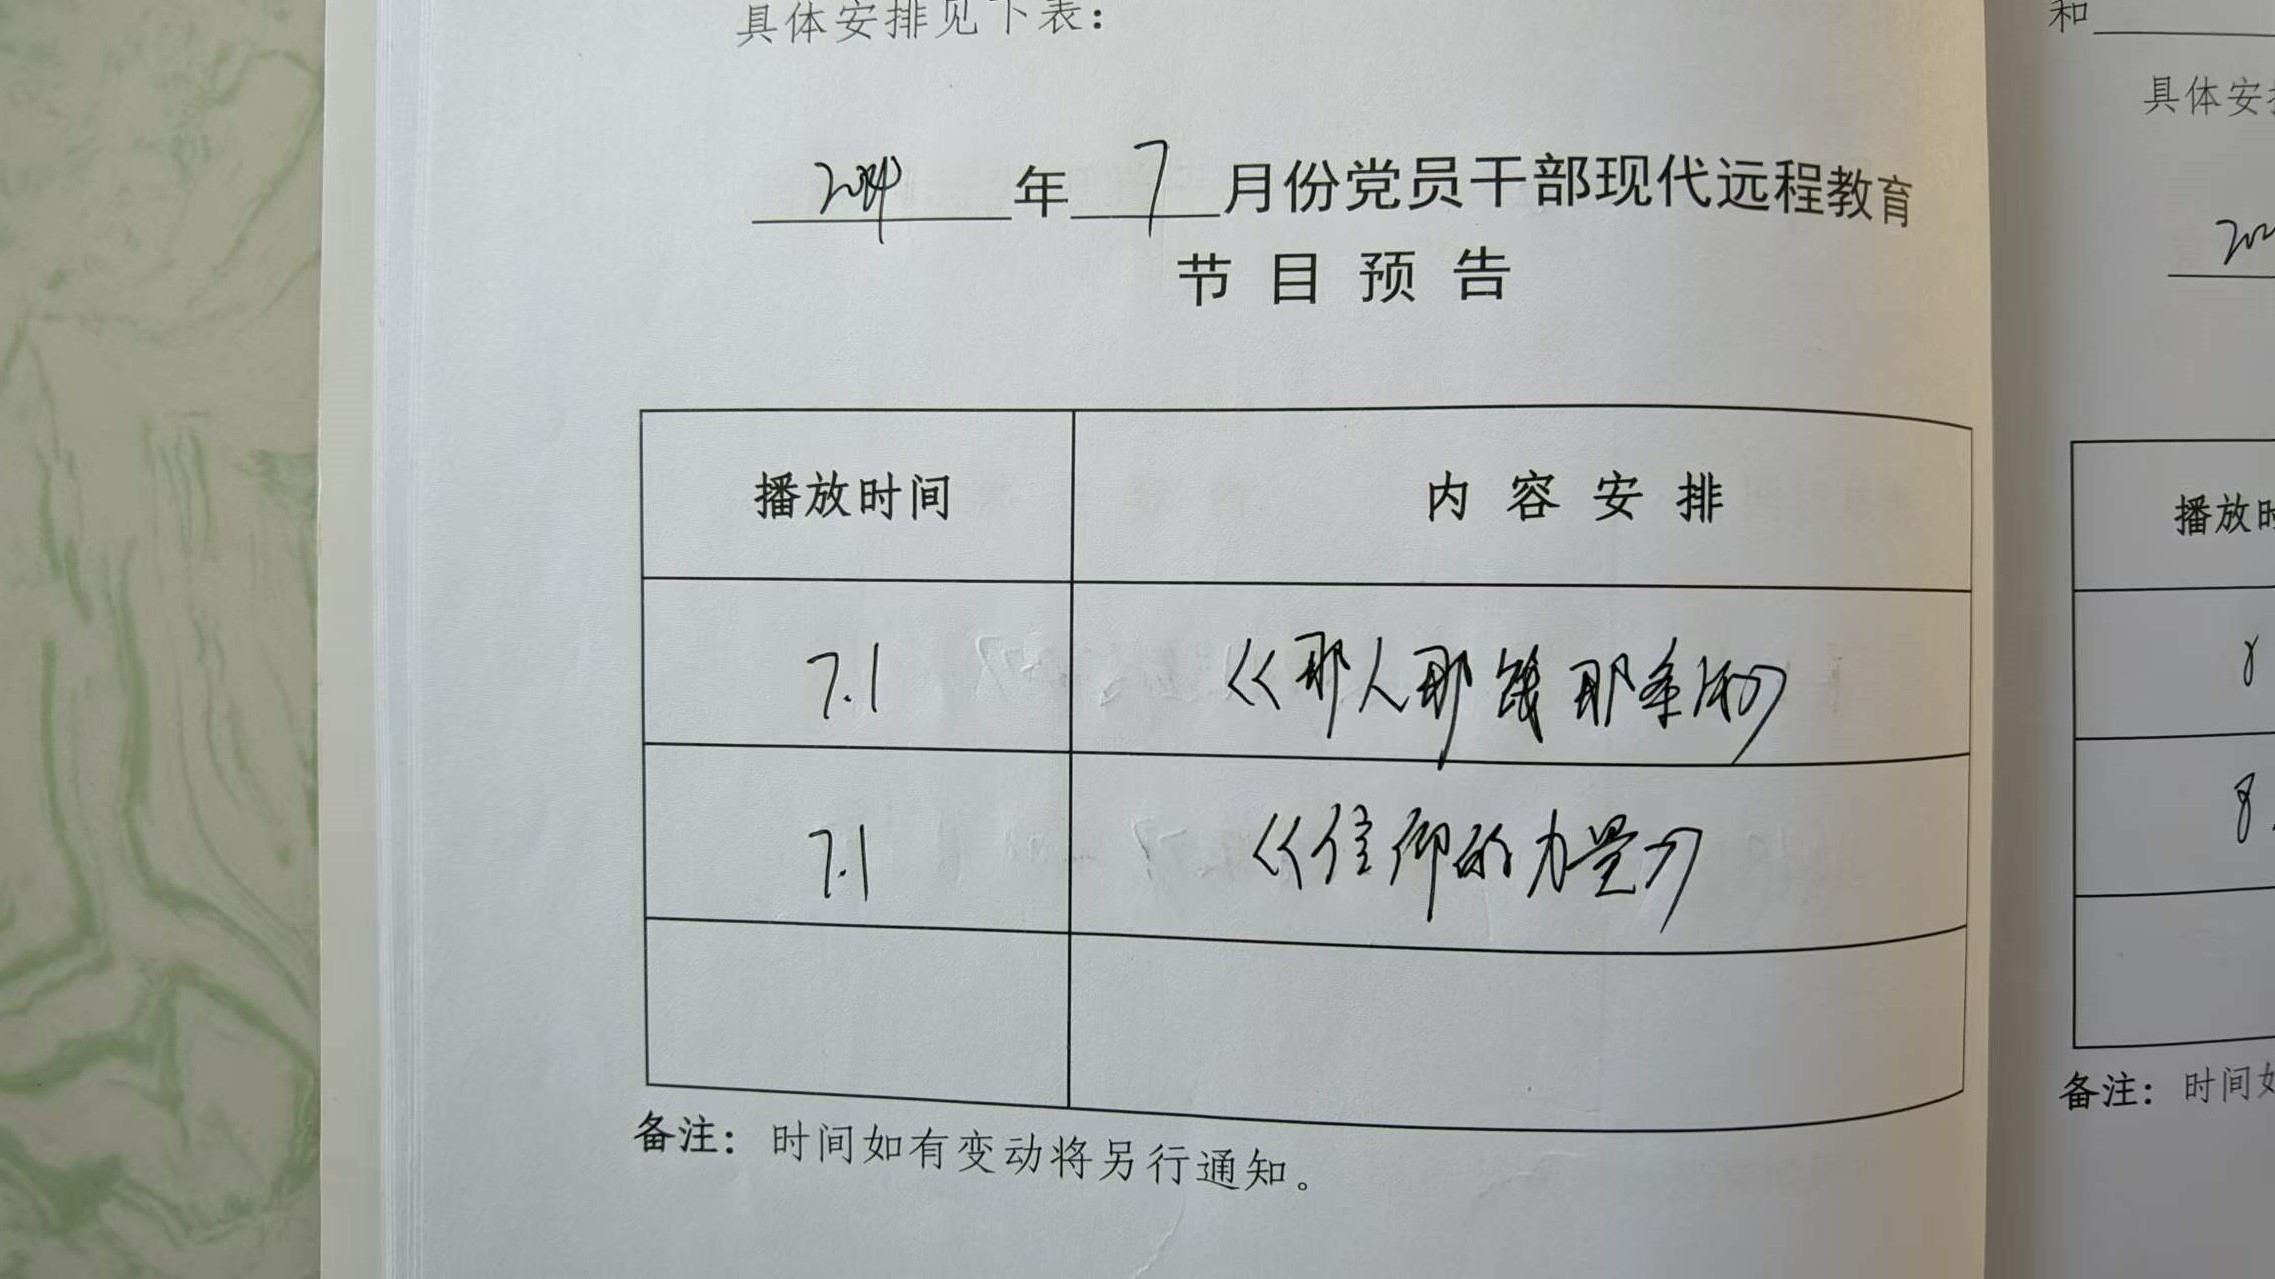 具体安排见下表：
2024年7月份党员干部现代远程教育
节目预告
播放时间 内容安排
7.1 《那人那钱那条河》
7.1 《信仰的力量》
备注：时间如有变动将另行通知。
和
具体安
202
播放时
8
8.
备注：时间如